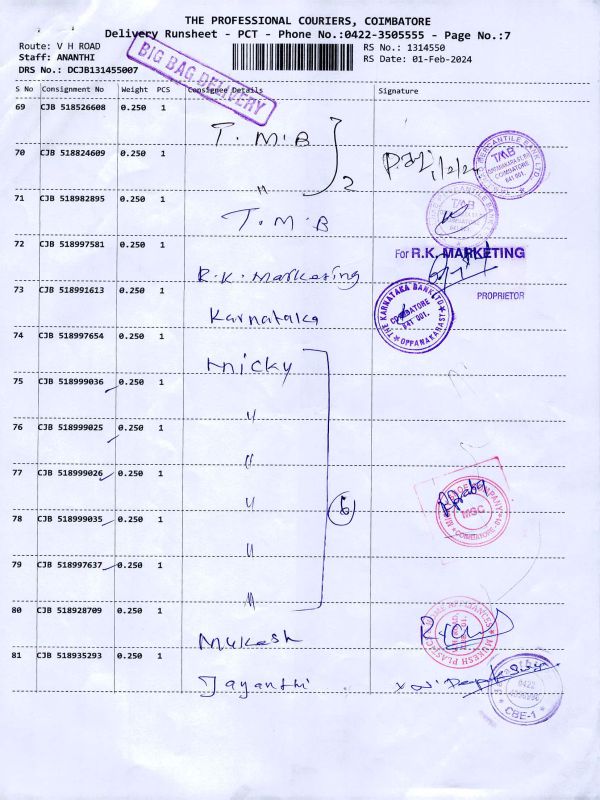 THE PROFESSIONAL COURIERS, COIMBATORE
Delivery Runsheet - PCT - Phone No.:0422-3505555 - Page No.:7
Route: V H ROAD RS No.: 1314550
Staff: ANANTHI RS Date: 01-Feb-2024
DRS No.: DCJB131455007
BIG BAG DELIVERY
S No Consignment No Weight PCS Consignee Details Signature
69 CJB 518526608 0.250 1 T.M.B
70 CJB 518824609 0.250 1 " 2 1/2/24
TMB
COIMBATORE
641 001.
71 CJB 518982895 0.250 1 T.M.B
TMB
72 CJB 518997581 0.250 1 R.K. Marketing
For R.K. MARKETING
PROPRIETOR
73 CJB 518991613 0.250 1 Karnataka
THE KARNATAKA BANK LTD
COIMBATORE
641 001.
74 CJB 518997654 0.250 1 Micky
75 CJB 518999036 0.250 1 "
76 CJB 518999025 0.250 1 "
77 CJB 518999026 0.250 1 " 6
MGC
COIMBATORE-01
78 CJB 518999035 0.250 1 "
79 CJB 518997637 0.250 1 "
80 CJB 518928709 0.250 1 Mukesh
81 CJB 518935293 0.250 1 Jayanthi
0422
CBE-1